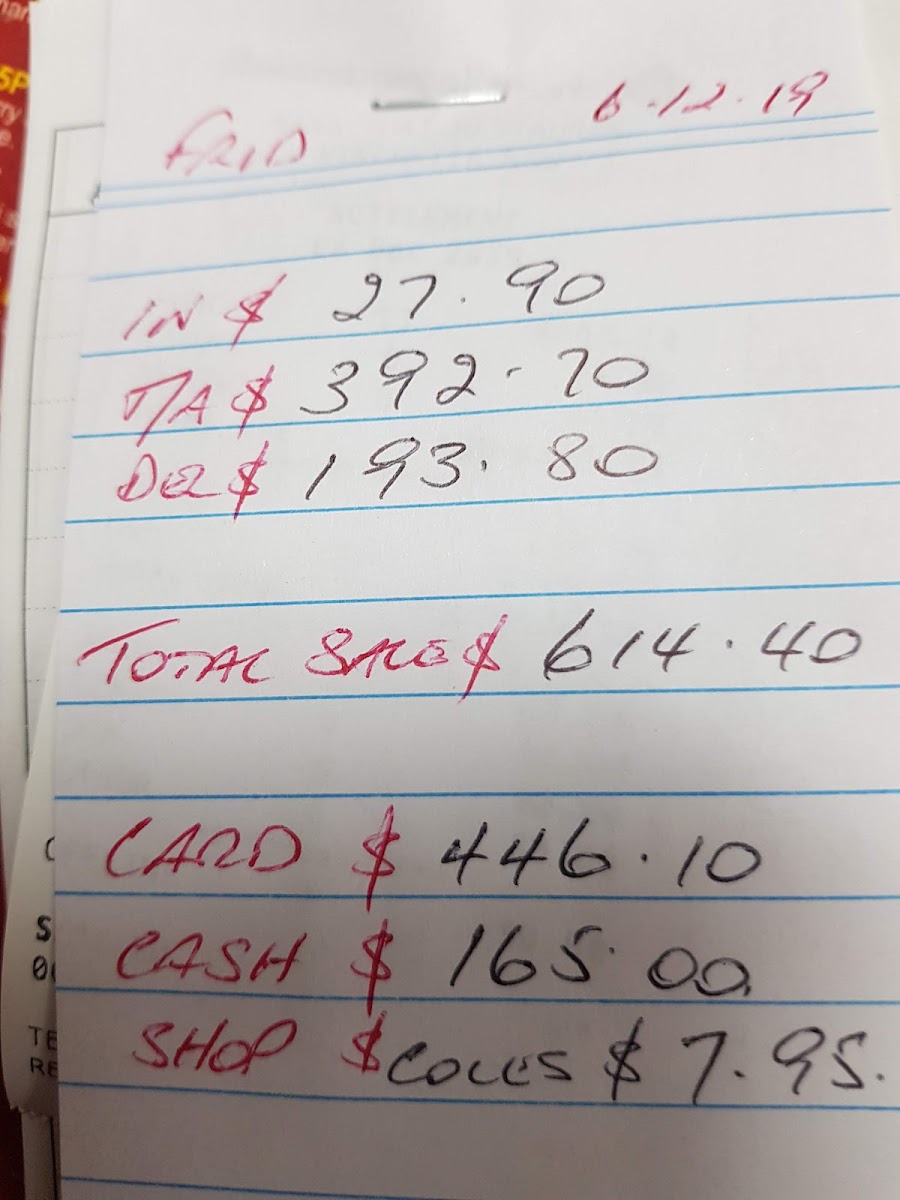 FRID 6.12.19
IN $ 27.90
T/A $ 392.70
DEL $ 193.80
TOTAL SALE $ 614.40
CARD $ 446.10
CASH $ 165.00
SHOP $ COLES $ 7.95.
5P
TE
RE